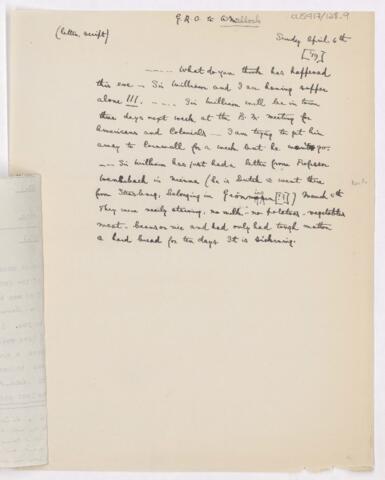 CUS417/128.9
G.R.O. to
(letter, script)
Sunday April 6th
[19]
---- What do you think has happened
this eve - Sir William and I are having supper
alone !!! .... Sir William will be in town
three days next week at the B.M. meeting for
Americans and Colonials - I am trying to get him
away to Cornwall for a week but he won't go.
--- Sir William has just had a letter from Professor
Wenckebach in Vienna (he is Dutch & went there
from Strasburg, belonging in Groningen [??]) March 6th
They were nearly starving, no milk - no potatoes - vegetables
meat - beans or rice and had only had tough mutton
& hard bread for ten days. It is sickening.